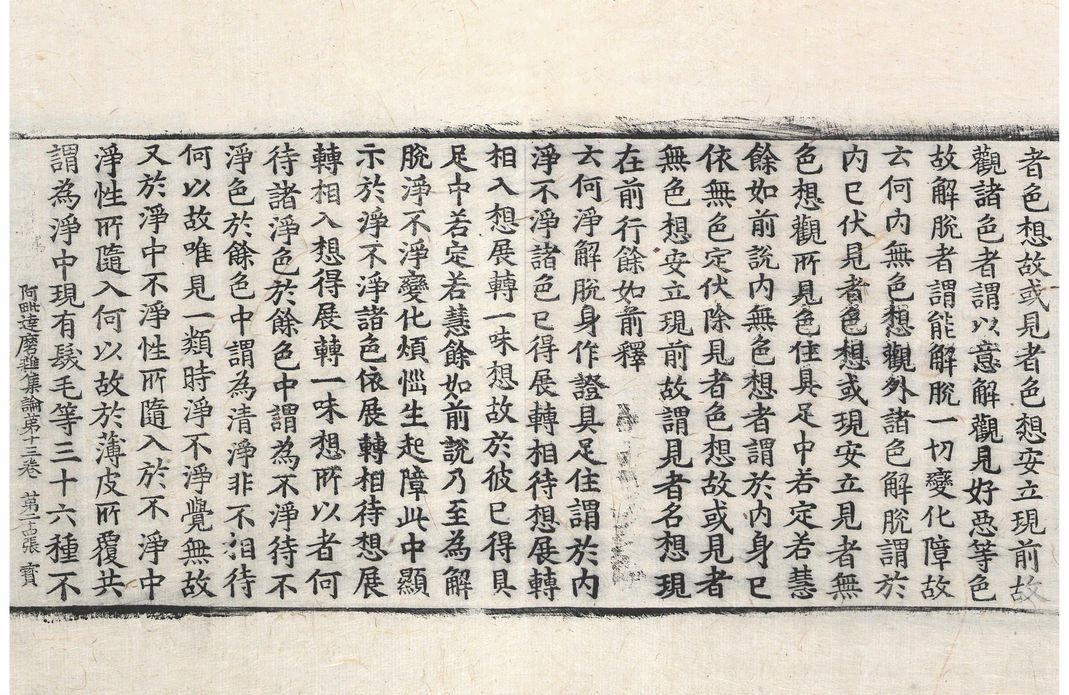 者色想故或見者色想安立現前故
觀諸色者謂以意解觀見好惡等色
故解脫者謂能解脫一切變化障故
云何內無色想觀外諸色解脫謂於
內已伏見者色想或現安立見者無
色想觀所見色住具足中若定若慧
餘如前說內無色想者謂於內身已
依無色定伏除見者色想故或見者
無色想安立現前故謂見者名想現
在前行餘如前釋
云何淨解脫身作證具足住謂於內
淨不淨諸色已得展轉相待想展轉
相入想展轉一味想故於彼已得具
足中若定若慧餘如前說乃至為解
脫淨不淨變化煩惱生起障此中顯
示於淨不淨諸色依展轉相待想展
轉相入想得展轉一味想所以者何
待諸淨色於餘色中謂為不淨待不
淨色於餘色中謂為清淨非不相待
何以故唯見一類時淨不淨覺無故
又於淨中不淨性所隨入於不淨中
淨性所隨入何以故於薄皮所覆共
謂為淨中現有髮毛等三十六種不
阿毗達磨雜集論第十三卷 張 賓